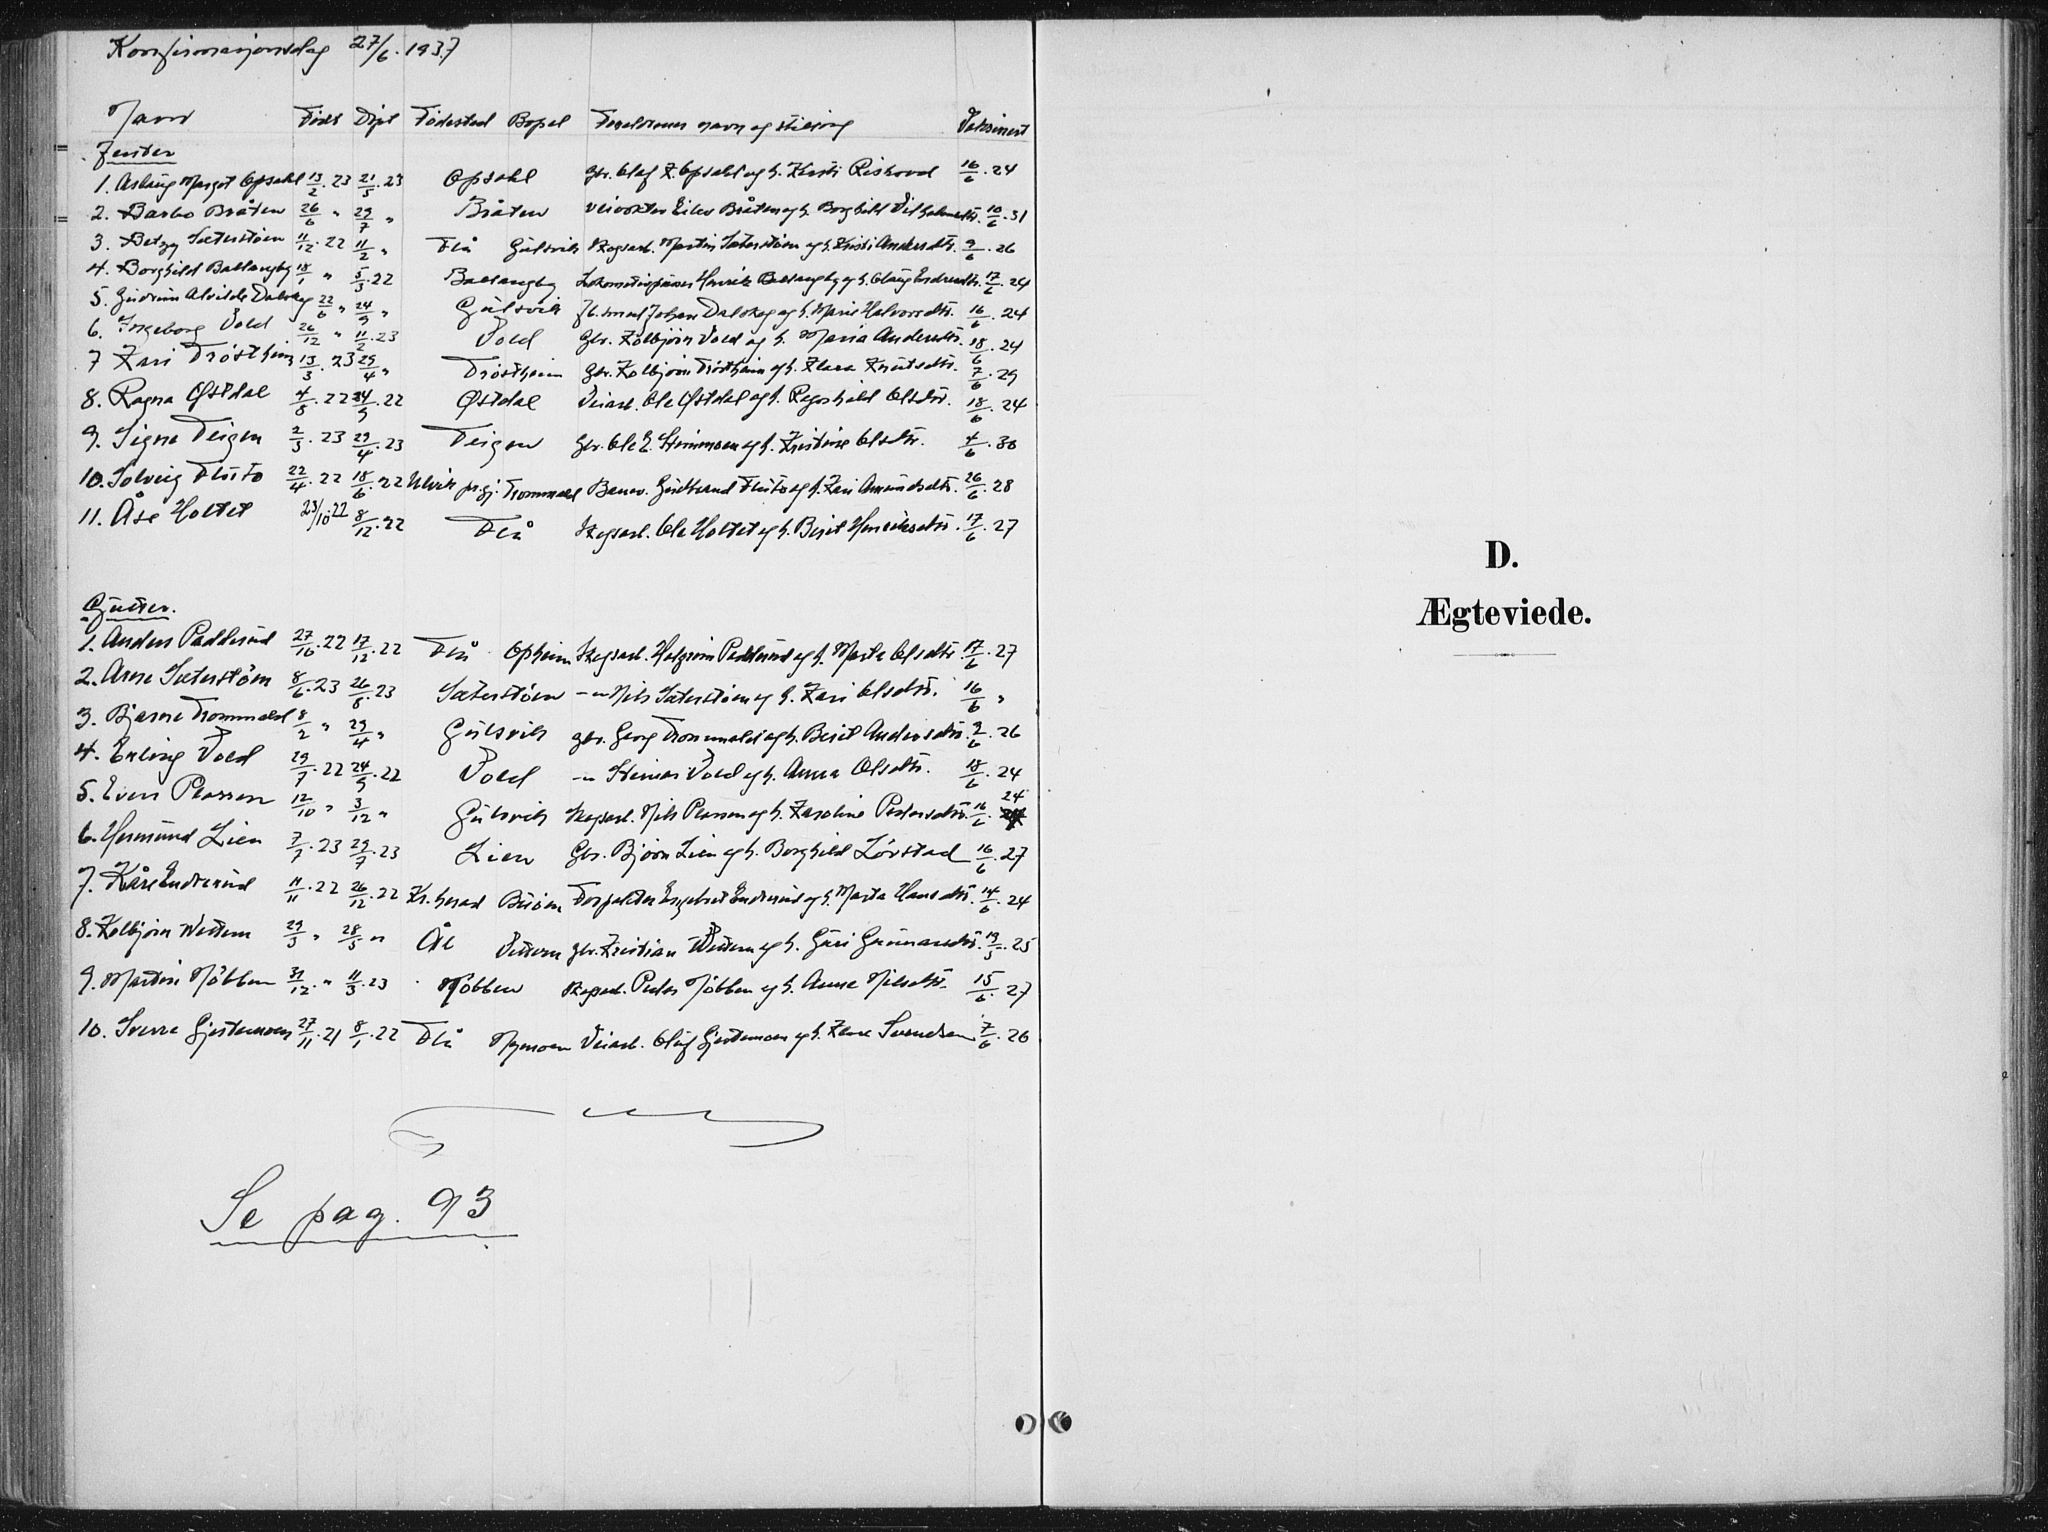 Konfirmasjonsdag 27/6. 1937
Navn Født Døpt Fødested Bopel Foreldrenes navn og stilling Vaksinert
Jenter
1. Aslaug Margot Opsahl 13/2. 23 21/5. 23 Opsahl Gbr. Olaf K. Opsahl og h. Kirsti 16/6. 24
2. Barbo Bråten 26/6 " 29/7 " Bråten Veivokter Eilev Bråten og h. Borghild 10/6. 31
3. Betzy Sæterstøen 11/12. 22 11/2 " Flå Gulsvik Skogsarb. Martin Sæterstøen og h. Kristi Andersdtr. 9/6. 26
4. Borghild Ballangby 18/1 " 5/3. 22 Ballangby Lokomotivpusser Henrik Ballangby og h. Olaug Endresdtr. 17/6. 24
5. Gudrun Alvilde Dalskog 22/6 " 24/9 " Gulsvik Johan Dalskog og h. Marie Halvorsdtr. 16/6. 24
6. Ingeborg Vold 26/12 " 11/2. 23 Vold Gbr. Kolbjørn Vold og h. Maria Andersdtr. 18/6. 24
7 Kari Trøstheim 13/3. 23 29/4 " Trøstheim Gbr. Kolbjørn Trøstheim og h. Klara Knutsdtr. 7/6. 29
8. Ragna Østdal 4/8. 22 24/9. 22 Østdal Veiarb. Ole Østdal og h. Ragnhild Olsdtr. 18/6. 24
9. Signe Teigen 2/3. 23 29/4. 23 Teigen Gbr. Ole E. og h. Kristine Olsdtr. 4/6. 30
10. Solveig Flåto 22/4. 22 18/6. 22 Ulvik pr.gj. Trommald Banev. Gudbrand Flåto og h. Kari Amundsdtr. 26/6. 28
11. Åse Holtet 23/10 22 8/12. 22 Flå Skogsarb. Ole Holtet og h. Birgit Henriksdtr. 17/6. 27
Gutter.
1. Anders Padderud 27/10. 22 17/12. 22 Flå Opheim Skogsarb. Halgrim Padderud og h. Marte Olsdtr. 17/6. 27
2. Arne Sæterstøen 8/6. 23 26/8. 23 Sæterstøen -"- Nils Sæterstøen og h. Kari Olsdtr. 16/6 "
3. Bjarne Trommald 8/2 " 29/4 " Gulsvik gbr. Georg Trommald og h. Berit Andersdtr. 9/6. 26
4. Erling Vold 29/7. 22 24/9. 22 Vold -"- Steinar Vold og h. Anna Olsdtr. 18/6. 24
5. Even Plassen 12/10 " 3/12 " Gulsvik Skogsarb. Nils Plassen og h. Karoline Pedersdtr. 16/6. 24
6. Hermund Lien 7/7. 23 29/7. 23 Lien Gbr. Bjørn Lien og h. Borghild Løvstad 16/6. 27
7. Kåre Enderud 11/11. 22 26/12. 22 Kr.herad Buøen Forpakter Engebret Enderud og h. Marta Hansdtr. 14/6. 24
8. Kolbjørn Wettern 29/3 " 28/5 " Ål Vettern gbr. Kristian Wettern og h. Guri Gunnarsdtr. 19/5. 25
9. Martin Nöbben 31/12. " 11/3. 23 Nöbben Skogsarb. Peder Nöbben og h. Anne Nilsdtr. 15/6. 27
10. Sverre Gjestemoen 27/11. 21 8/1. 22 Flå Nymoen Veiarb. Oluf Gjestemoen og h. Svendsen 7/6. 26
Se pag. 93
D.
Ægteviede.